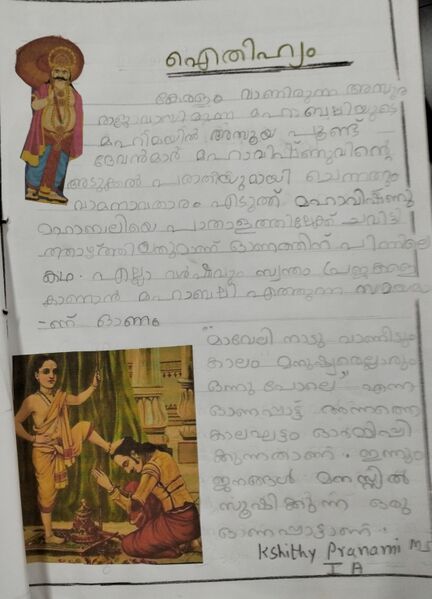 ഐതിഹ്യം
കേരളം വാണിരുന്ന അസുര
രാജാവായിരുന്ന മഹാബലിയുടെ
മഹിമയിൽ അസൂയ പൂണ്ട്
ദേവൻമാർ മഹാവിഷ്ണുവിന്റെ
അടുക്കൽ പരാതിയുമായി ചെന്നതും
വാമനാവതാരം എടുത്ത് മഹാവിഷ്ണു
മഹാബലിയെ പാതാളത്തിലേക്ക് ചവിട്ടി
താഴ്ത്തിയതുമാണ് ഓണത്തിന് പിന്നിലെ
കഥ. എല്ലാ വർഷവും സ്വന്തം പ്രജകളെ
കാണാൻ മഹാബലി എത്തുന്ന സമയമാ
ണ് ഓണം
"മാവേലി നാടു വാണീടും
കാലം മനുഷ്യരെല്ലാരും
ഒന്നു പോലെ" എന്ന
ഓണപ്പാട്ട് അന്നത്തെ
കാലഘട്ടം ഓർമ്മിപ്പി
ക്കുന്നതാണ്. ഇന്നും
ജനങ്ങൾ മനസ്സിൽ
സൂക്ഷിക്കുന്ന ഒരു
ഓണപ്പാട്ടാണ്.
Kshithy Pranami M S
I A